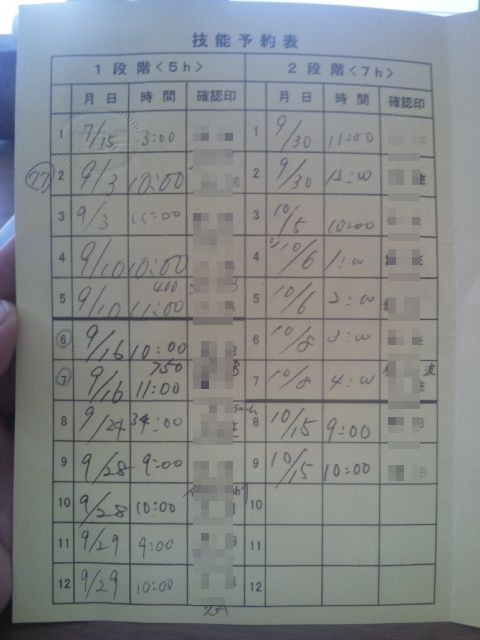 技能予約表
1段階<5h> 2段階<7h>
月日 時間 確認印 月日 時間 確認印
1 7/15 3:00 1 9/30 11:00
27 2 9/3 10:00 2 9/30
3 9/3 11:00 3 10/5 10:00
4 9/10 10:00 4 10/6 1:00
410
5 9/10 11:00 5 10/6 2:00
6 9/16 10:00 6 10/8 3:00
750
7 9/16 11:00 7 10/8 4:00
8 9/24 8 10/15 9:00
9 9/28 9:00 9 10/15 10:00
10 9/28 10:00 10
11 9/29 9:00 11
12 9/29 10:00 12